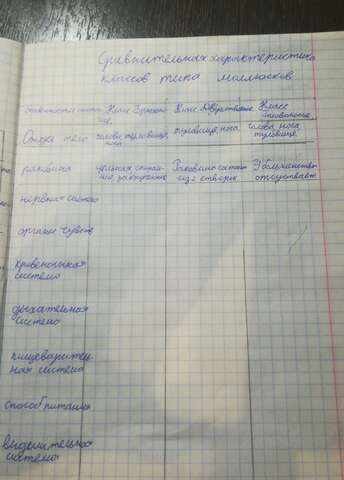 Сравнительная характеристика
классов типа моллюсков
Класс Двустворчатые Класс
Головоногие
Отдел тела голова, туловище, нога туловище, нога голова, нога,
туловище
раковина цельная спирально закрученная Раковина состоит из 2 створок У большинства
отсутствует
нервная система
органы чувств
кровеносная
система
дыхательная
система
пищеварительная система
способ питания
выделительная
система